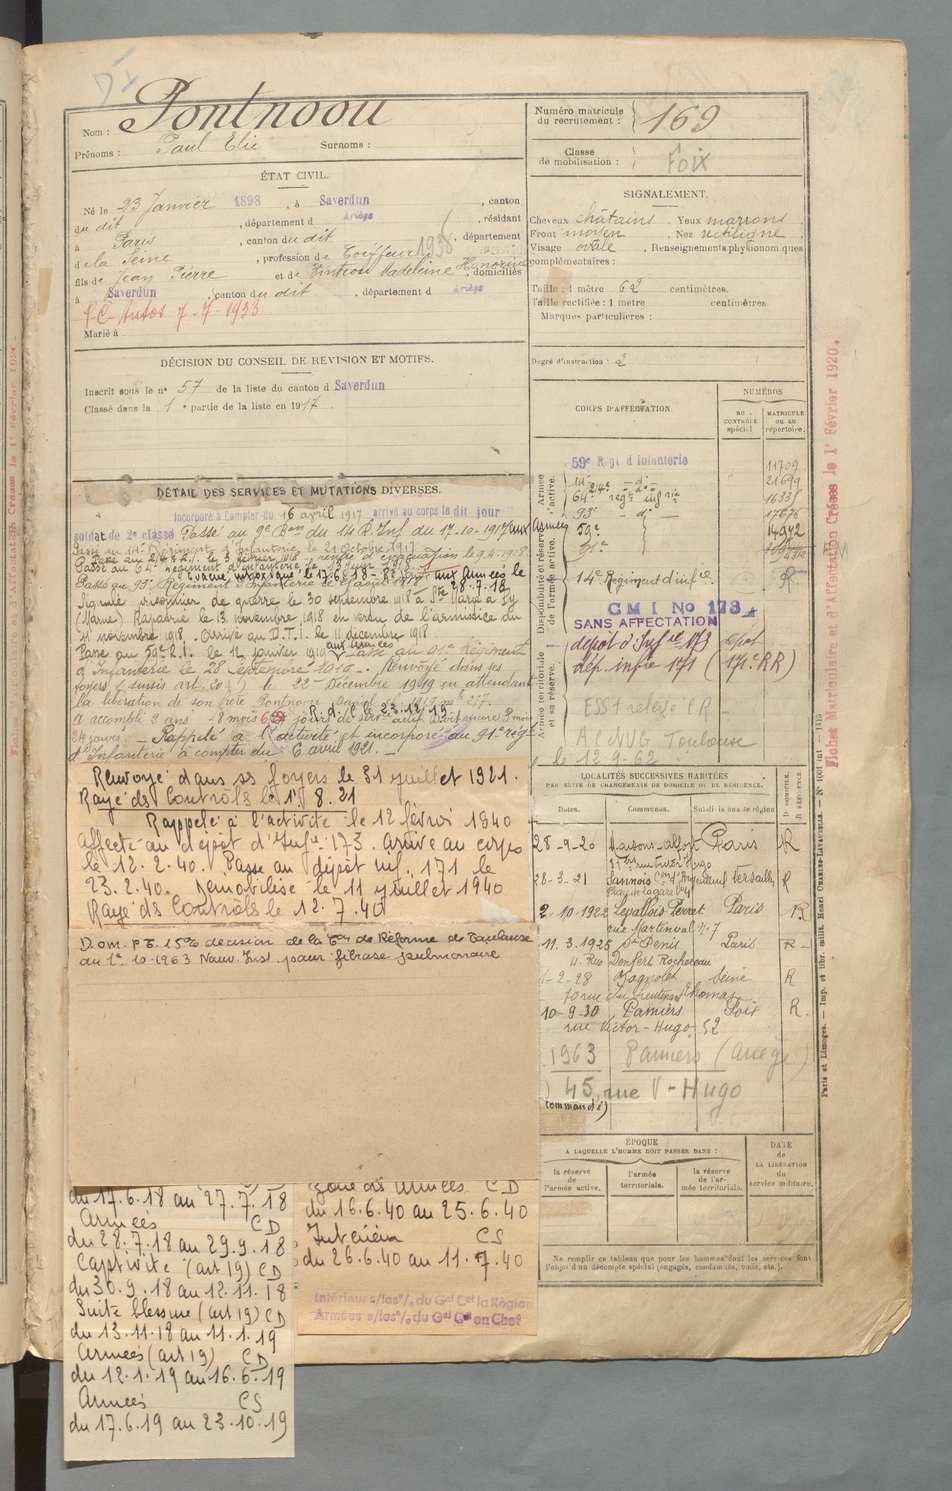 Nom : Pontnoou
Prénoms : Paul Elie Surnoms :
ÉTAT CIVIL.
Né le 23 Janvier 1898, à Saverdun, canton
du dit, département d Ariège, résidant
à Paris, canton du dit, département
de la Seine, profession de Coiffeur
fils de Jean Pierre et de Madeleine Honorine, domiciliés
à Saverdun, canton du dit, département d Ariège
P.C. Autos 7-7-1933
Marié à
DÉCISION DU CONSEIL DE RÉVISION ET MOTIFS.
Inscrit sous le n° 57 de la liste du canton d Saverdun
Classé dans la 1e partie de la liste en 1917.
DÉTAIL DES SERVICES ET MUTATIONS DIVERSES.
Incorporé à Compter du 16 avril 1917 arrivé au corps le dit jour
soldat de 2e classe Passé au 9e Bon du 14 R. Inf du 17-10-1917 aux Armées
Passé au 14e Régiment d'Infanterie le 21 Octobre 1917
Passé au 93e Régiment d'Infanterie le 28.7.18 aux Armées le 28.7.18
Signalé prisonnier de guerre le 30 septembre 1918 à Ste Marie à Py
(Marne) Rapatrié le 13 novembre 1918 en vertu de l'armistice du
11 novembre 1918. Arrivé au D.T.I. le 11 décembre 1918.
Passé au 59e R.I. le 12 janvier 1919 aux armées Passé au 91e Régiment
d'Infanterie le 28 Septembre 1919. Renvoyé dans ses
foyers (sursis art. 20) le 22 Décembre 1919 en attendant
la libération de son frère Pontnoou
R.d.C. le 23.12.19
a accompli 2 ans 8 mois 6 jours de service actif
24 jours. Rappelé à l'activité et incorporé au 91e régt
d'Infanterie à compter du 6 avril 1921.
Renvoyé dans ss foyers le 31 juillet 1921.
Rayé ds Contrôls le 1r 8.21
Rappelé à l'activité le 12 févri 1940
affecté au dépôt d'Infie 173. Arrivé au corps
le 12.2.40. Passé au dépôt inf. 171 le
23.2.40. Démobilisé le 11 juillet 1940
Rayé ds Contrôls le 12.7.40
Dom. P.E. 15% décision de la Con de Réforme de Toulouse
du 1er 10.1963 Nouv. Inst. pour fibrose pulmonaire
du 17.6.18 au 27.7.18
Armées CD
du 28.7.18 au 29.9.18
Captivité (art 19) CD
du 30.9.18 au 12.11.18
Suite blessure (art 19) CD
du 13.11.18 au 11.1.19
Armées (art 19) CD
du 12.1.19 au 16.6.19
Armées CS
du 17.6.19 au 23.10.19
Zone ds Armées CD
du 16.6.40 au 25.6.40
Intérieur CS
du 26.6.40 au 11.7.40
Intérieur s/les°/. du Gal Ct la Région
Armées s/les°/. du Gal Ct en Chef
Numéro matricule du recrutement : 169
Classe de mobilisation : Foix
SIGNALEMENT.
Cheveux châtains. Yeux marrons
Front moyen. Nez rectiligne
Visage ovale. Renseignements physionomiques
complémentaires :
Taille : 1 mètre 62 centimètres.
Taille rectifiée : 1 mètre centimètres.
Marques particulières :
Degré d'instruction : 2
CORPS D'AFFECTATION.
NUMÉROS
AU CONTRÔLE spécial
MATRICULE OU AU répertoire.
Armée active.
59e Régt d Infanterie 11709
14e 21699
64e régt infrie 16335
93e d° 17676
59e 14942
91e
Disponibilité et réserve de l'armée active.
14e Régiment d'infie R
C M I No 173
SANS AFFECTATION
dépôt d'Infie 173
dép. infie 171 (171e RR)
Armée territoriale et sa réserve.
ACNVG Toulouse
le 12.9.62
LOCALITÉS SUCCESSIVES HABITÉES
PAR SUITE DE CHANGEMENTS DE DOMICILE OU DE RÉSIDENCE.
Dates. Communes. Subdivisions de région D DOMICILE. R RÉSIDENCE.
25-9-20 Maisons-Alfort Paris R
28-3-21 Sannois Con d'Argenteuil Versailles R
Place de la gare No 4
2-10-1922 Levallois Perret Paris R
rue Martinval No 7
11.3.1925 St Denis Paris R
4. Rue Denfert Rochereau
1-2-28 Bagnolet Seine R
70 rue du Lieutenant Thomas
10-9-30 Pamiers Foix R.
rue Victor-Hugo 52
1963 Pamiers (Ariège)
45, rue V-Hugo
ÉPOQUE
A LAQUELLE L'HOMME DOIT PASSER DANS :
la réserve de l'armée active.
l'armée territoriale.
la réserve de l'armée territoriale.
DATE de LA LIBÉRATION du service militaire.
Ne remplir ce tableau que pour les hommes dont les services font
l'objet d'un décompte spécial (engagés, condamnés, omis, etc.).
Fiches Matriculaire et d'Affectation Créées le 1r Février 1920.
Paris et Limoges. — Imp. et libr. milit. Henri CHARLES-LAVAUZELLE. — N° 1001 int — 1415